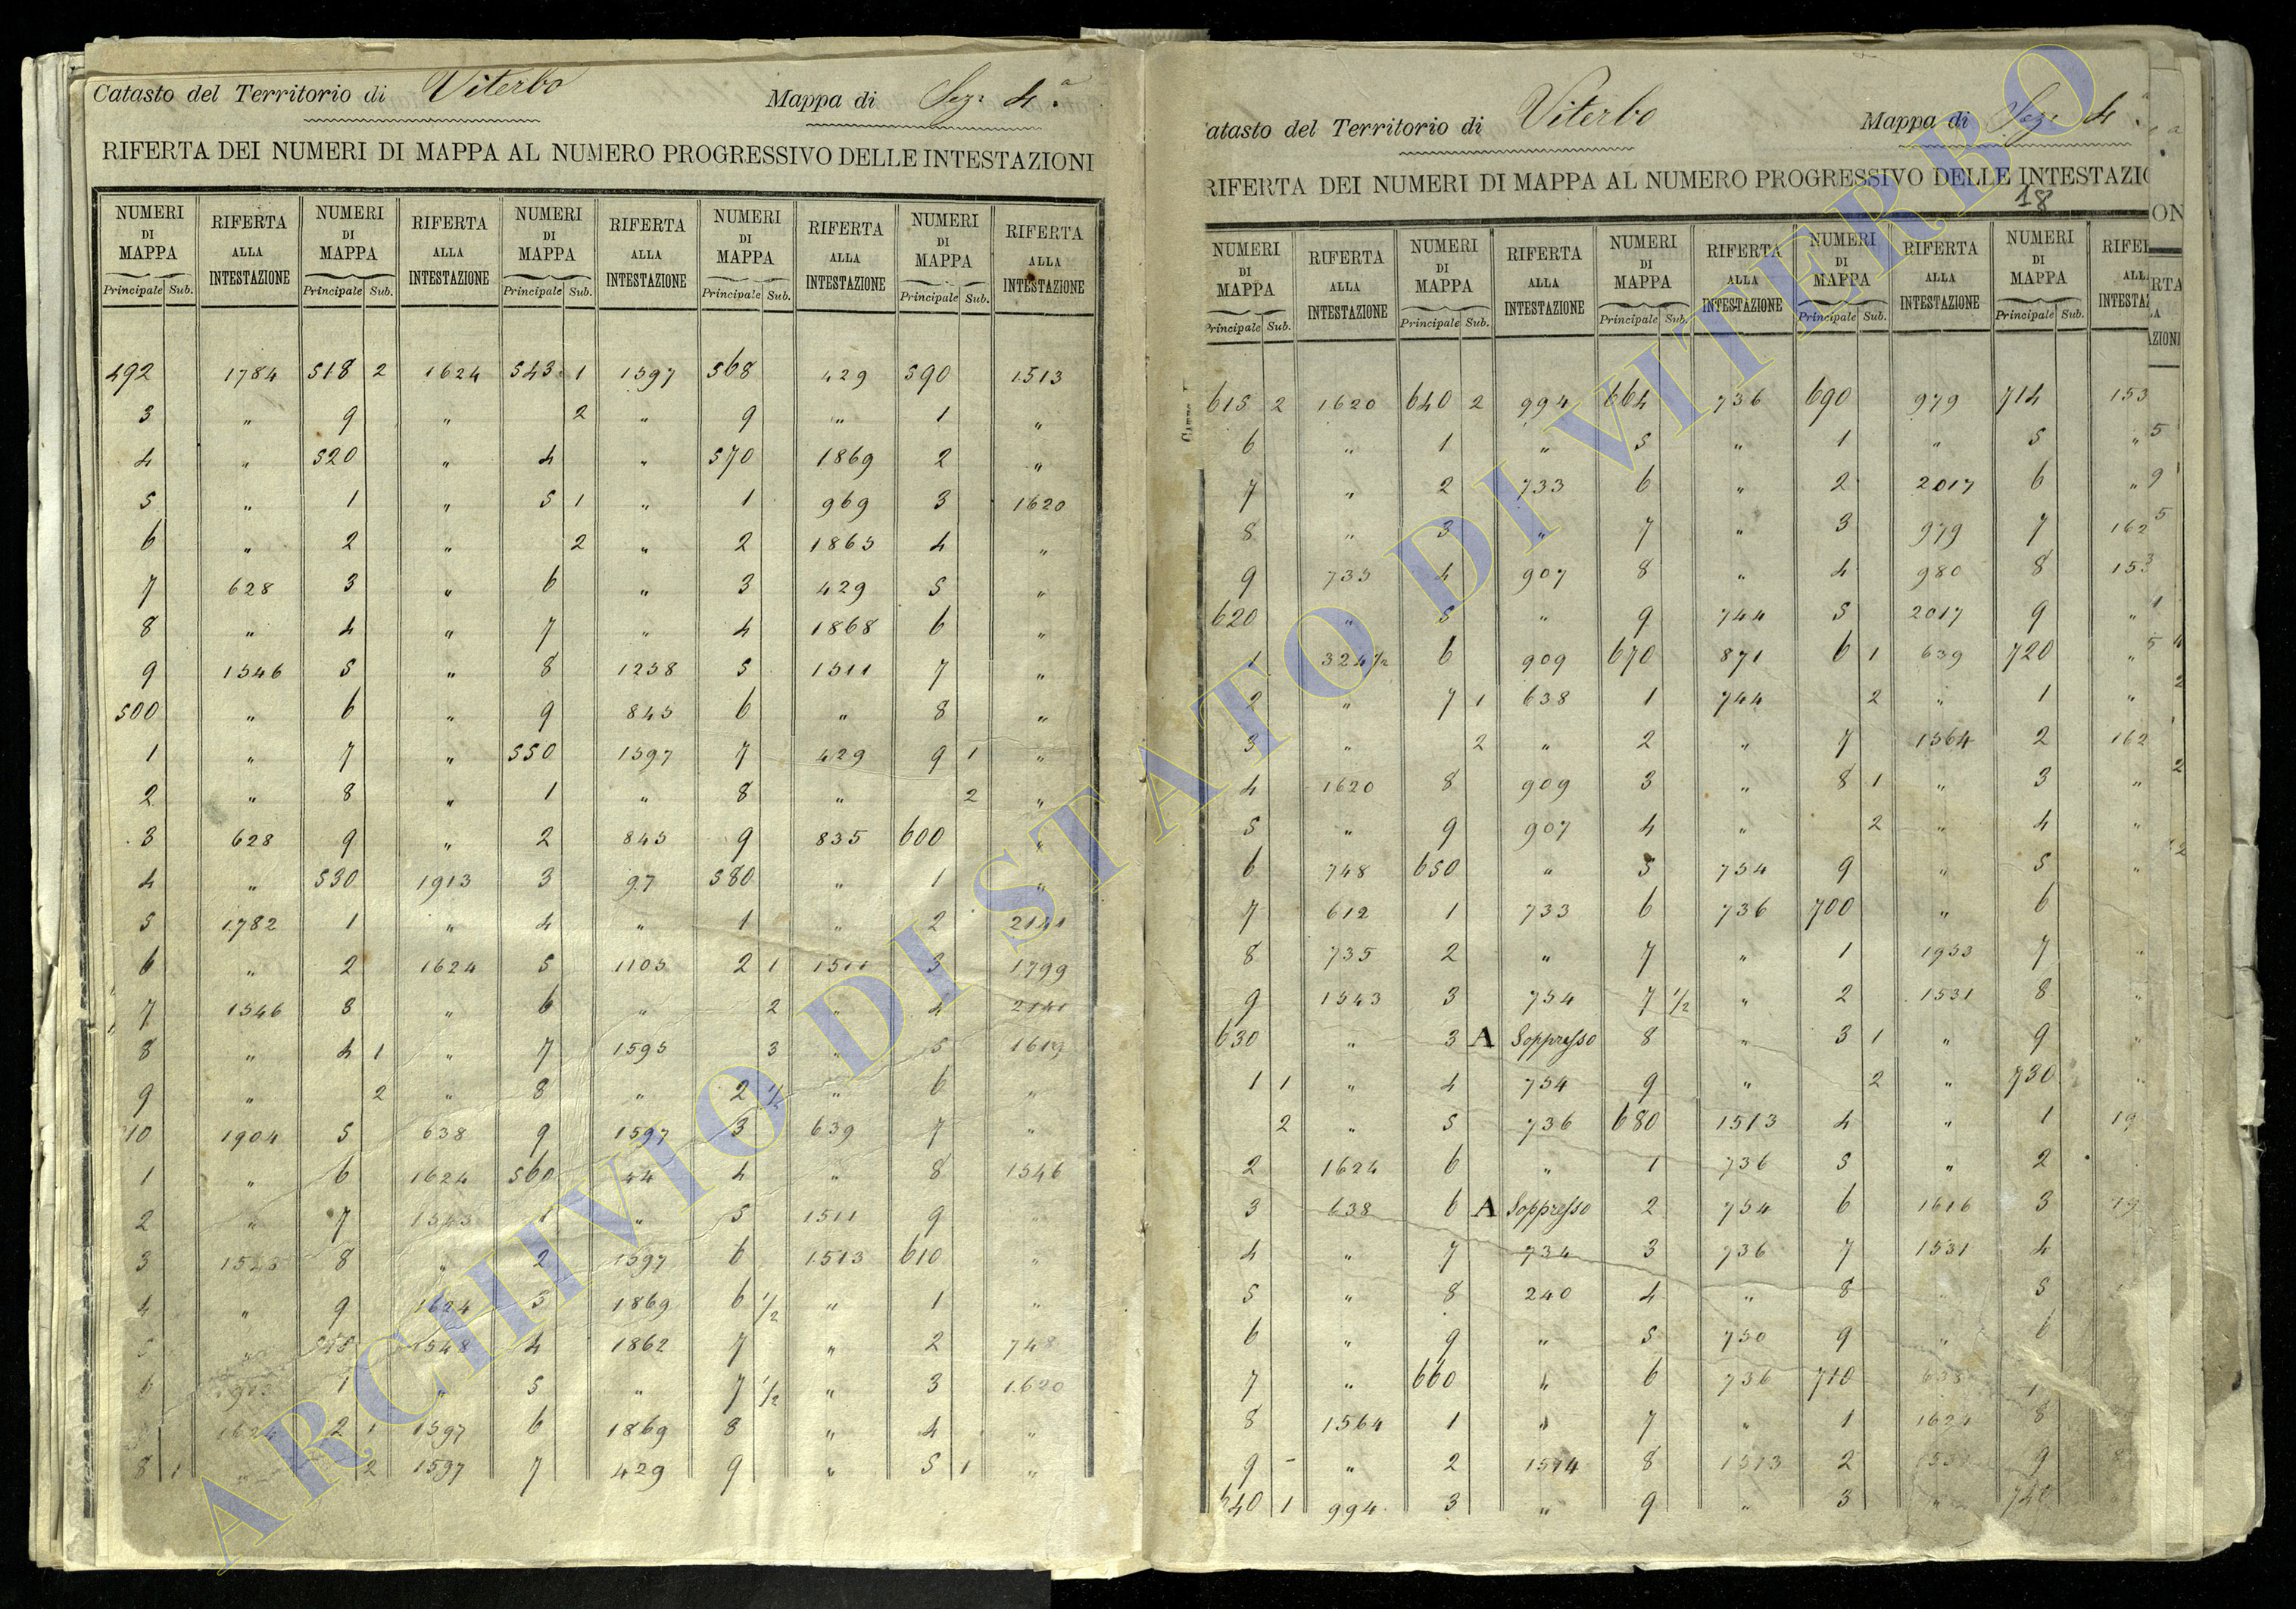 Catasto del Territorio di Viterbo Mappa di Sez. 4.a
RIFERTA DEI NUMERI DI MAPPA AL NUMERO PROGRESSIVO DELLE INTESTAZIONI
NUMERI DI MAPPA RIFERTA ALLA INTESTAZIONE NUMERI DI MAPPA RIFERTA ALLA INTESTAZIONE NUMERI DI MAPPA RIFERTA ALLA INTESTAZIONE NUMERI DI MAPPA RIFERTA ALLA INTESTAZIONE NUMERI DI MAPPA RIFERTA ALLA INTESTAZIONE
Principale Sub. Principale Sub. Principale Sub. Principale Sub. Principale Sub.
492 1784 518 2 1624 543 1 1597 568 429 590 1513
3 " 9 " 2 " 9 " 1 "
4 " 520 " 4 " 570 1869 2 "
5 " 1 " 5 1 " 1 969 3 1620
6 " 2 " 2 " 2 1865 4 "
7 628 3 " 6 " 3 429 5 "
8 " 4 " 7 " 4 1868 6 "
9 1546 5 " 8 1258 5 1511 7 "
500 " 6 " 9 845 6 " 8 "
1 " 7 " 550 1597 7 429 9 1 "
2 " 8 " 1 " 8 " 2 "
3 628 9 " 2 845 9 835 600 "
4 " 530 1913 3 97 580 " 1 "
5 1782 1 " 4 " 1 " 2 2141
6 " 2 1624 5 1105 2 1 1511 3 1799
7 1546 3 " 6 " 2 " 4 2141
8 " 4 1 " 7 1595 3 " 5 1619
9 " 2 " 8 " 2 1/2 " 6 "
10 1904 5 638 9 1597 3 639 7 "
1 " 6 1624 560 44 4 " 8 1546
2 " 7 1543 1 " 5 1511 9 "
3 1525 8 " 2 1597 6 1513 610 "
4 " 9 1624 3 1869 6 1/2 " 1 "
" 1548 4 1862 7 " 2 748
6 1913 1 " 5 " 7 1/2 " 3 1620
1624 2 1 1597 6 1869 8 " 4 "
8 1 " 2 1597 7 429 9 " 5 1 "
atasto del Territorio di Viterbo Mappa di Sez. 4.a
RIFERTA DEI NUMERI DI MAPPA AL NUMERO PROGRESSIVO DELLE INTESTAZIO
18
NUMERI DI MAPPA RIFERTA ALLA INTESTAZIONE NUMERI DI MAPPA RIFERTA ALLA INTESTAZIONE NUMERI DI MAPPA RIFERTA ALLA INTESTAZIONE NUMERI DI MAPPA RIFERTA ALLA INTESTAZIONE NUMERI DI MAPPA RIFER ALLA INTESTAZ
Principale Sub. Principale Sub. Principale Sub. Principale Sub. Principale Sub.
615 2 1620 640 2 994 664 736 690 979 714 153
6 " 1 " 5 " 1 " 5 "
7 " 2 733 6 " 2 2017 6 "
8 " 3 " 7 " 3 979 7 162
9 735 4 907 8 " 4 980 8 153
620 " 5 " 9 744 5 2017 9 "
1 324 1/2 6 909 670 871 6 1 639 720 "
2 " 7 1 638 1 744 2 " 1 "
3 " 2 " 2 " 7 1564 2 162
4 1620 8 909 3 " 8 1 " 3 "
5 " 9 907 4 " 2 " 4 "
6 748 650 " 5 754 9 " 5 "
7 612 1 733 6 736 700 " 6
8 735 2 " 7 " 1 1953 7 "
9 1543 3 754 7 1/2 " 2 1531 8 "
630 " 3 A Soppresso 8 " 3 1 " 9 "
1 1 " 4 754 9 " 2 " 730 "
2 " 5 736 680 1513 4 " 1 19
2 1624 6 " 1 736 5 " 2
3 638 6 A Soppresso 2 754 6 1616 3 19
4 " 7 734 3 736 7 1531 4
5 " 8 240 4 " 8 " 5
6 " 9 " 5 750 9 " 6
7 " 660 " 6 736 710 638
8 1564 1 " 7 " 1 1624 8
9 - " 2 1514 8 1513 2 9
640 1 994 3 " 9 " 3 " 740
ARCHIVIO DI STATO DI VITERBO